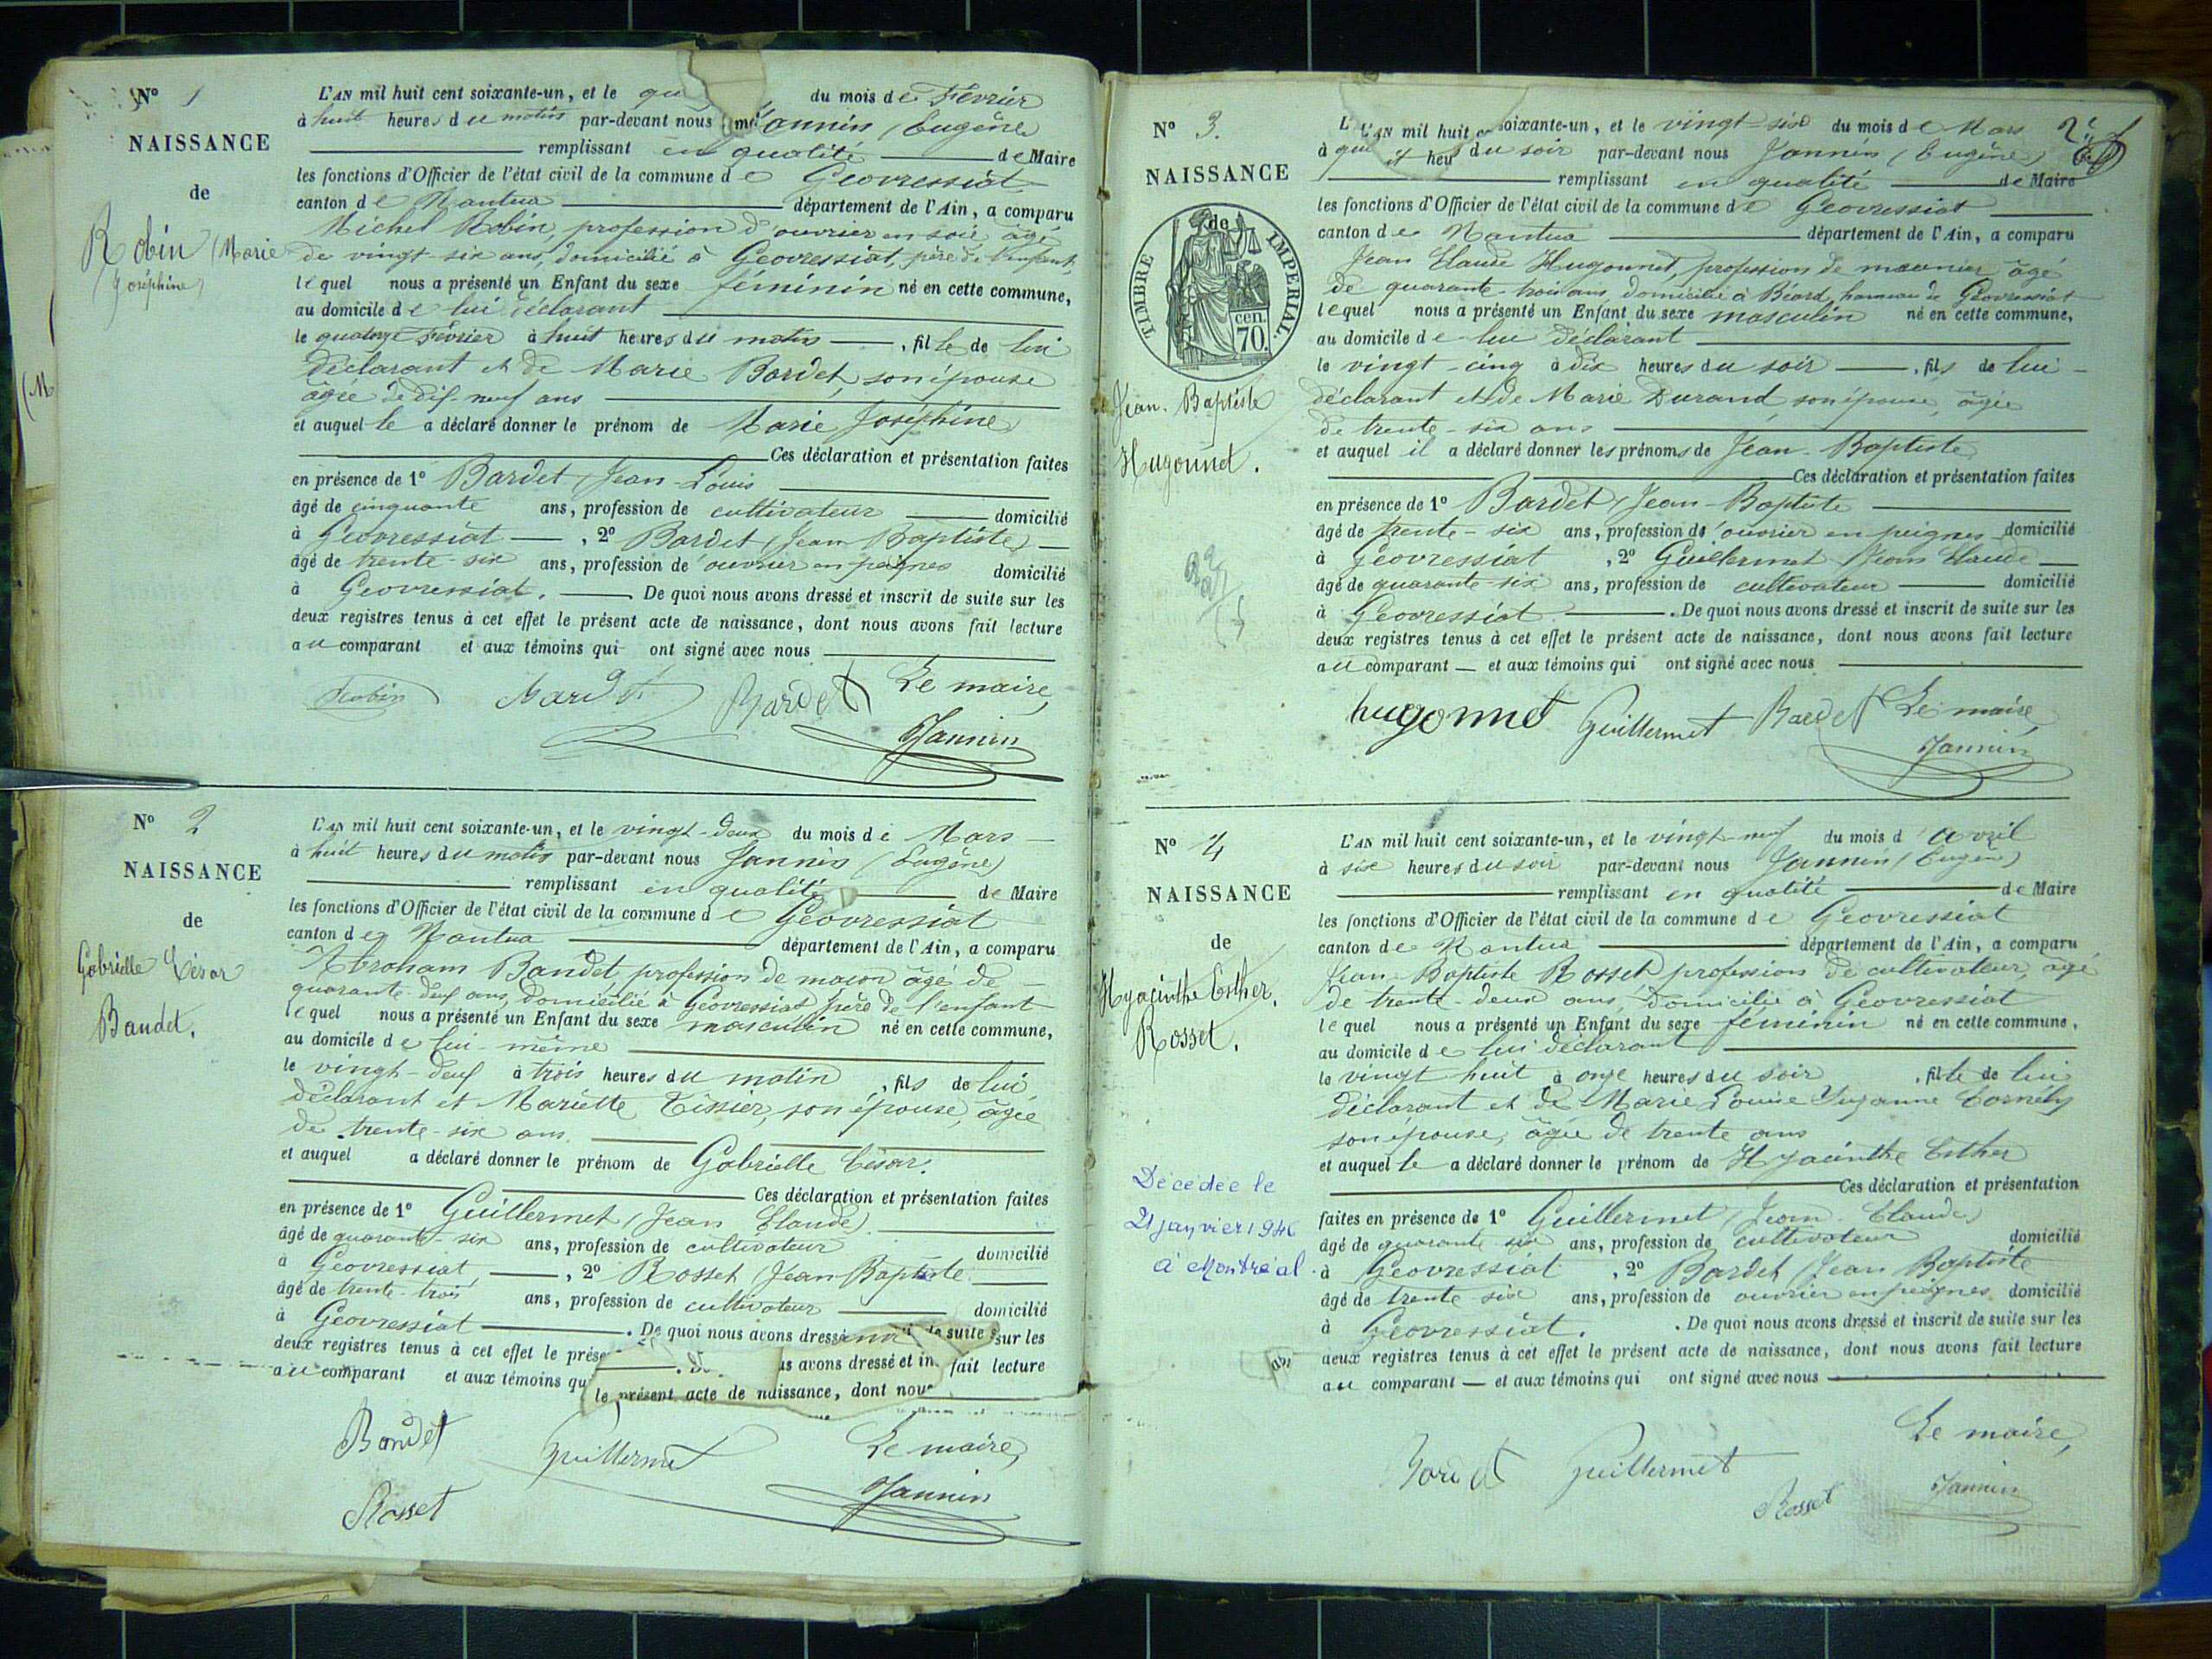 Nº 1
NAISSANCE
de
Robin (Marie
Joséphine)
L'AN mil huit cent soixante-un, et le qu du mois de Février
à huit heures du matin par-devant nous Jannin (Eugène)
remplissant en qualité de Maire
les fonctions d'Officier de l'état civil de la commune de Géovressiat
canton de Nantua département de l'Ain, a comparu
Michel Robin, profession d'ouvrier en soie âgé
de vingt-six ans, domicilié à Géovressiat, père de l'enfant,
lequel nous a présenté un Enfant du sexe féminin né en cette commune,
au domicile de lui déclarant
le quatorze Février à huit heures du matin, fille de lui
déclarant et de Marie Bardet, son épouse
âgée de dix-neuf ans
et auquel le a déclaré donner le prénom de Marie Joséphine
Ces déclaration et présentation faites
en présence de 1º Bardet (Jean-Louis
âgé de cinquante ans, profession de cultivateur domicilié
à Géovressiat, 2º Bardet (Jean Baptiste)
âgé de trente-six ans, profession de ouvrier en peignes domicilié
à Géovressiat. De quoi nous avons dressé et inscrit de suite sur les
deux registres tenus à cet effet le présent acte de naissance, dont nous avons fait lecture
au comparant et aux témoins qui ont signé avec nous
Robin Bardet Bardet Le maire,
Jannin
Nº 2
NAISSANCE
de
Gabrielle César
Baudet.
L'AN mil huit cent soixante-un, et le vingt-deux du mois de Mars
à huit heures du matin par-devant nous Jannin (Eugène)
remplissant en qualité de Maire
les fonctions d'Officier de l'état civil de la commune de Géovressiat
canton de Nantua département de l'Ain, a comparu
Abraham Baudet profession de maçon âgé de
quarante-deux ans, domicilié à Géovressiat père de l'enfant
lequel nous a présenté un Enfant du sexe masculin né en cette commune,
au domicile de lui-même
le vingt-deux à trois heures du matin, fils de lui
déclarant et Mariette Tissier, son épouse, âgée
de trente-six ans
et auquel a déclaré donner le prénom de Gabrielle César.
Ces déclaration et présentation faites
en présence de 1º Guillermet (Jean Claude)
âgé de quarante-six ans, profession de cultivateur domicilié
à Géovressiat, 2º Rosset (Jean Baptiste
âgé de trente-trois ans, profession de cultivateur domicilié
à Géovressiat. De quoi nous avons dressé de suite sur les
deux registres tenus à cet effet le prése us avons dressé et in fait lecture
au comparant et aux témoins qu le présent acte de naissance, dont nous
Baudet Guillermet Le maire,
Rosset Jannin
Nº 3.
NAISSANCE
de
TIMBRE IMPERIAL.
cen.
70.
Jean-Baptiste
Hugonnet.
2e
L'AN mil huit soixante-un, et le vingt-six du mois de Mars
à heu du soir par-devant nous Jannin (Eugène)
remplissant en qualité de Maire
les fonctions d'Officier de l'état civil de la commune de Géovressiat
canton de Nantua département de l'Ain, a comparu
Jean Claude Hugonnet, profession de meunier âgé
de quarante-trois ans, domicilié à Béard, hameau de Géovressiat
lequel nous a présenté un Enfant du sexe masculin né en cette commune,
au domicile de lui déclarant
le vingt-cinq à dix heures du soir, fils de lui
déclarant et de Marie Durand, son épouse, âgée
de trente-six ans
et auquel il a déclaré donner les prénoms de Jean-Baptiste
Ces déclaration et présentation faites
en présence de 1º Bardet (Jean-Baptiste
âgé de trente-six ans, profession de ouvrier en peignes domicilié
à Géovressiat, 2º Guillermet (Jean Claude
âgé de quarante-six ans, profession de cultivateur domicilié
à Géovressiat. De quoi nous avons dressé et inscrit de suite sur les
deux registres tenus à cet effet le présent acte de naissance, dont nous avons fait lecture
au comparant et aux témoins qui ont signé avec nous
hugonnet Guillermet Bardet Le maire,
Jannin
Nº 4
NAISSANCE
de
Hyacinthe Esther.
Rosset.
Décédée le
21 janvier 1946
à Montréal.
L'AN mil huit cent soixante-un, et le vingt-neuf du mois d'avril
à six heures du soir par-devant nous Jannin (Eugène)
remplissant en qualité de Maire
les fonctions d'Officier de l'état civil de la commune de Géovressiat
canton de Nantua département de l'Ain, a comparu
Jean-Baptiste Rosset, profession de cultivateur, âgé
de trente-deux ans, domicilié à Géovressiat
lequel nous a présenté un Enfant du sexe féminin né en cette commune,
au domicile de lui déclarant
le vingt huit à onze heures du soir, fille de lui
déclarant et de Marie Louise Suzanne Cornély
son épouse, âgée de trente ans
et auquel le a déclaré donner le prénom de Hyacinthe Esther
Ces déclaration et présentation
faites en présence de 1º Guillermet (Jean-Claude)
âgé de quarante six ans, profession de cultivateur domicilié
à Géovressiat, 2º Bardet (Jean Baptiste
âgé de trente-six ans, profession de ouvrier en peignes domicilié
à Géovressiat. De quoi nous avons dressé et inscrit de suite sur les
deux registres tenus à cet effet le présent acte de naissance, dont nous avons fait lecture
au comparant et aux témoins qui ont signé avec nous
Le maire,
Bardet Guillermet
Rosset Jannin